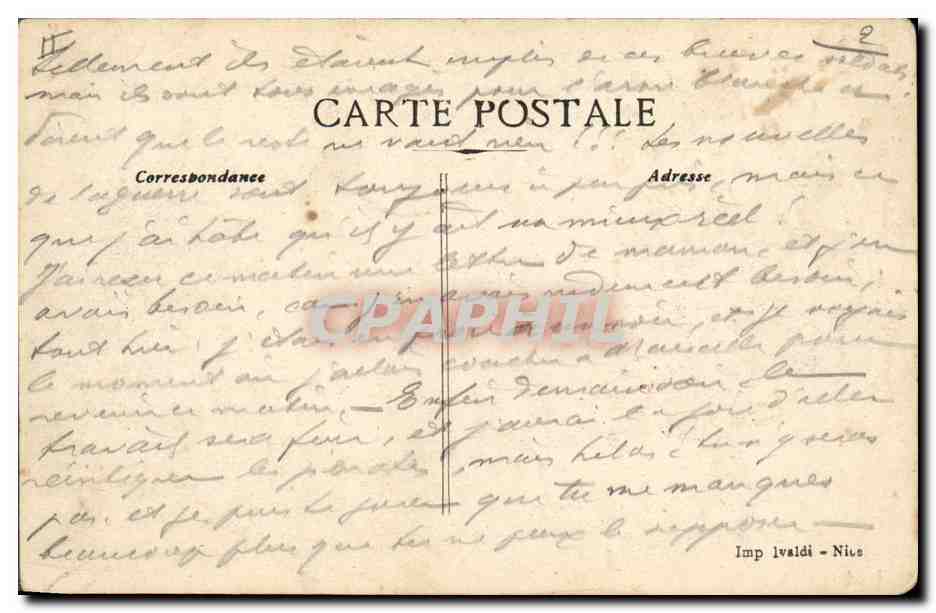 II
2
tellement ils étaient emplis de ces braves soldats
mais ils sont tous
CARTE POSTALE
disent que le reste ne vaut rien !!! Les nouvelles
Correspondance
Adresse
de la guerre sont toujours à peu près, mais ce
que j'ai hâte qu'il y ait un mieux réel !
J'ai reçu ce matin une lettre de maman, et j'en
avais besoin, car j'en avais rudement besoin,
CPAPHIL
tout hier j'étais un peu et je voyais
le moment où j'allais coucher à Marseille pour
revenir ce matin. — Enfin demain soir le
travail sera fini, et j'aurai la joie d'aller
réintégrer les pénates, mais hélas ! tu n'y seras
pas, et je puis te jurer que tu me manques
beaucoup plus que tu ne peux le supposer —
Imp Ivaldi - Nice